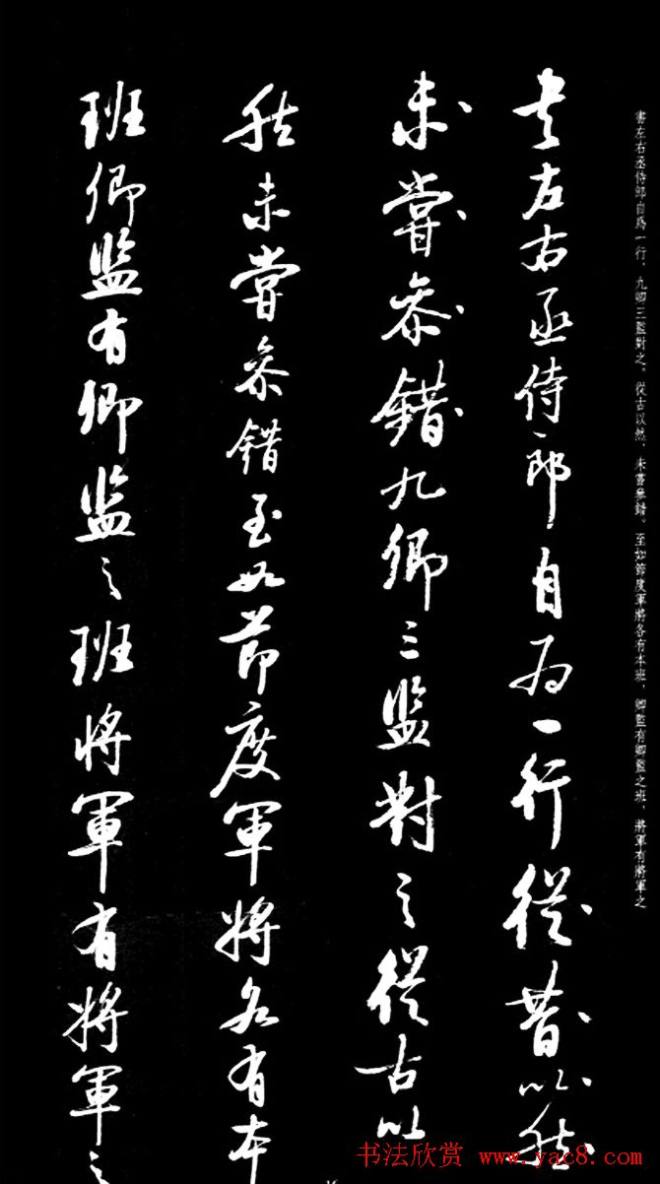 書左右丞侍郎自爲一行，九卿三監對之。從古以然，未嘗參錯。至如節度軍將各有本班，卿監有卿監之班，將軍有將軍之
書左右丞侍郎自為一行從昔以然
未嘗參錯九卿三監對之從古以
然未嘗參錯至如節度軍將各有本
班卿監有卿監之班將軍有將軍之
书法欣赏 www.yac8.com